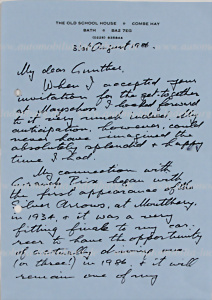 THE OLD SCHOOL HOUSE • COMBE HAY
BATH • BA2 7EG
31st August, 1986.
My dear Gunther,
When I accepted your
invitation to the get-together
at I looked forward
to it very much indeed. My
anticipation, however, could
never have imagined the
absolutely splendid & happy
time I had.
My connection with
Grands Prix began with
the first appearance of the
Silver Arrows, at Montlhéry,
in 1934, & it was a very
fitting finale to my car-
reer to have the opportunity
of actually driving one
(or three!) in 1986, & it will
remain one of my